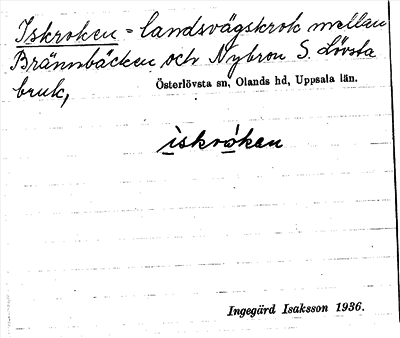 Iskroken = landsvägskrok mellan
Brännbäcken och Nybron S. Lövsta
bruk,
Österlövsta sn, Olands hd, Uppsala län.
iskrọ́ken
Ingegärd Isaksson 1936.